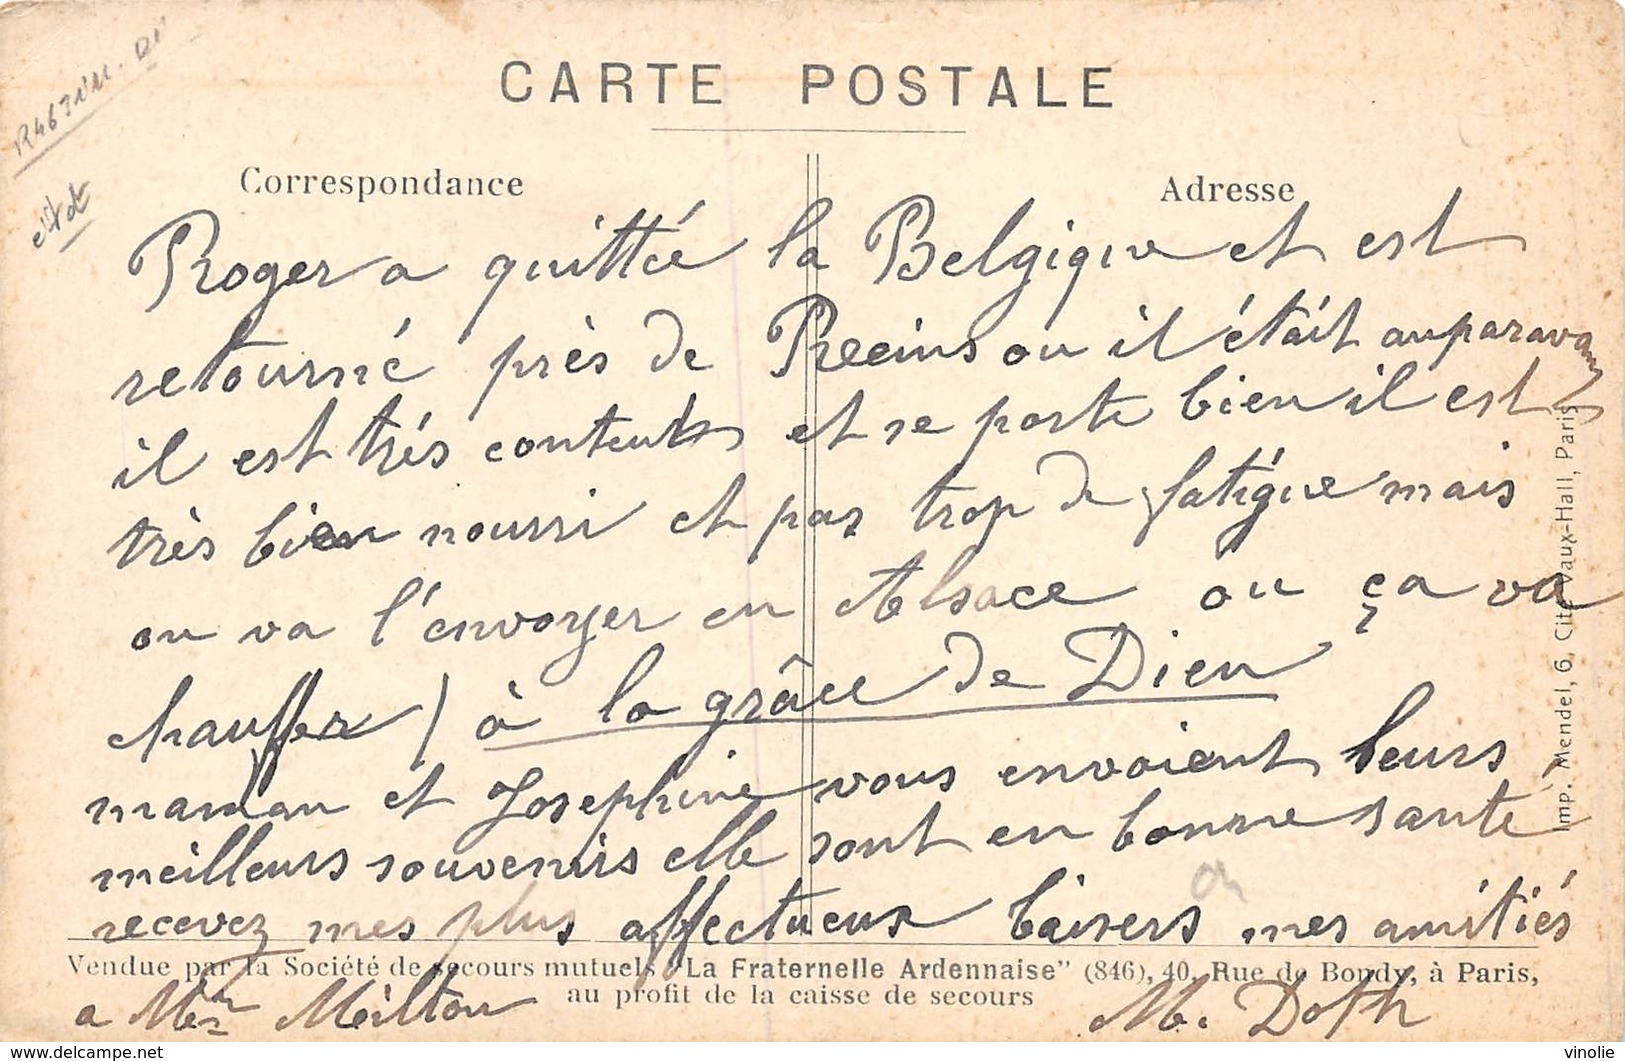 CARTE POSTALE
Correspondance
Adresse
Roger a quittée la Belgique et est
retourné près de Reeims ou il était auparavant
il est trés contents et se porte bien il est
très bien nourri et pas trop de fatigue mais
on va l'envoyer en Alsace ou ça va
chauffer / à la grâce de Dieu
maman et Josephine vous envoient leurs
meilleurs souvenirs elle sont en bonne sante
recevez mes plus affectueux baisers mes amitiés
a Mr Milton M. Doth
Vendue par la Société de secours mutuels "La Fraternelle Ardennaise" (846), 40, Rue de Bondy, à Paris,
au profit de la caisse de secours
Imp. Mendel, 6, Cité Vaux-Hall, Paris
delcampe.net
vinolie